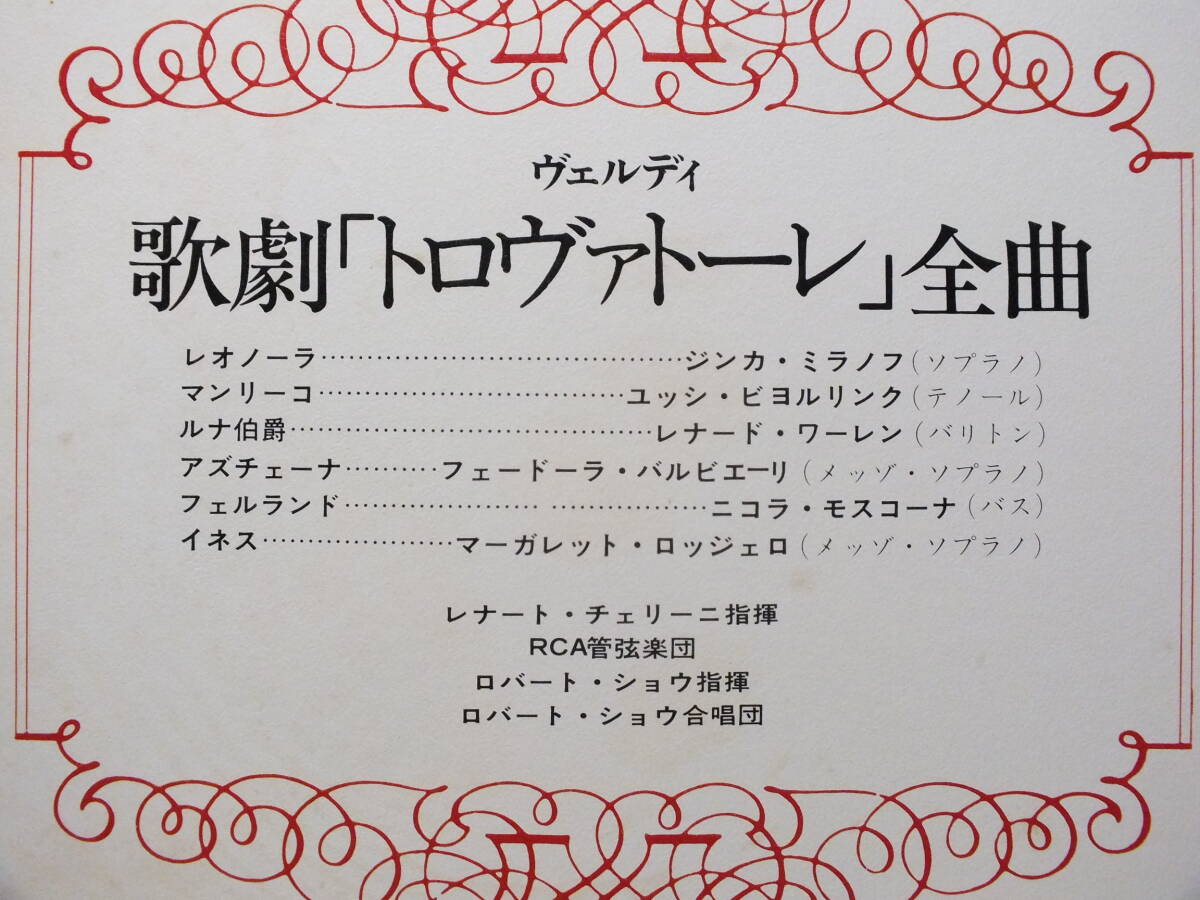 ヴェルディ
歌劇「トロヴァトーレ」全曲
レオノーラ……………………………………ジンカ・ミラノフ(ソプラノ)
マンリーコ………………………………ユッシ・ビヨルリンク(テノール)
ルナ伯爵……………………………………レナード・ワーレン(バリトン)
アズチェーナ…………フェードーラ・バルビエーリ(メッゾ・ソプラノ)
フェルランド…………………… ………………ニコラ・モスコーナ(バス)
イネス…………………マーガレット・ロッジェロ(メッゾ・ソプラノ)
レナート・チェリーニ指揮
RCA管弦楽団
ロバート・ショウ指揮
ロバート・ショウ合唱団